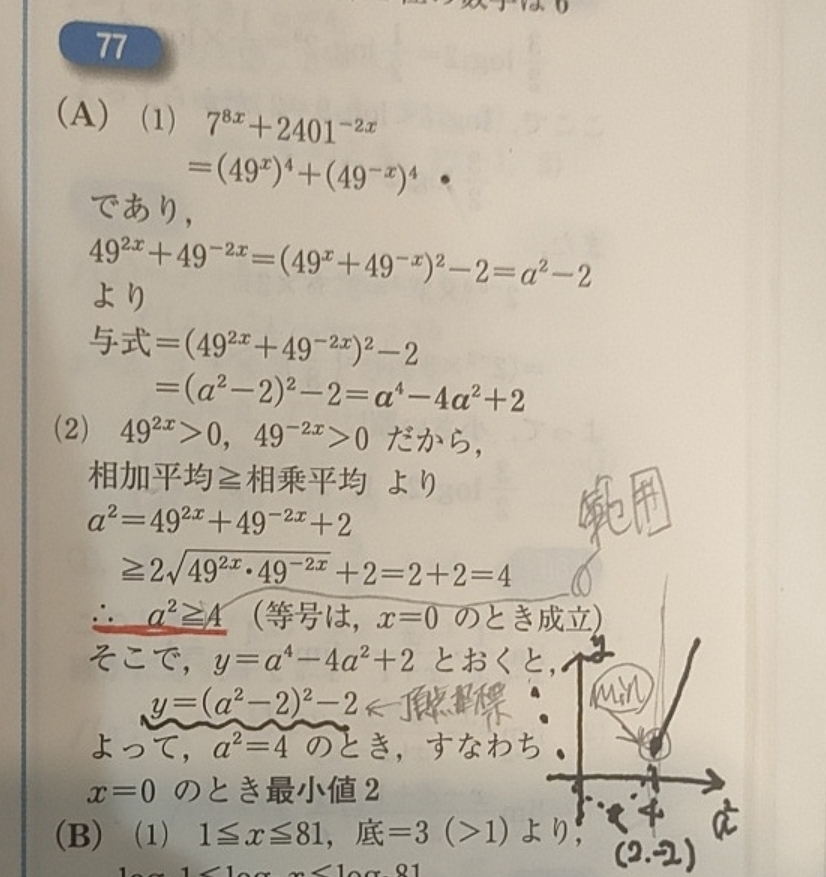 の数字は6
77
(A) (1) 7^{8x}+2401^{-2x}
=(49^x)^4+(49^{-x})^4
であり,
49^{2x}+49^{-2x}=(49^x+49^{-x})^2-2=a^2-2
より
与式=(49^{2x}+49^{-2x})^2-2
=(a^2-2)^2-2=a^4-4a^2+2
(2) 49^{2x}>0, 49^{-2x}>0 だから,
相加平均≧相乗平均 より
a^2=49^{2x}+49^{-2x}+2
範囲
≧2√(49^{2x}・49^{-2x})+2=2+2=4
∴ a^2≧4 (等号は, x=0 のとき成立)
そこで, y=a^4-4a^2+2 とおくと,
y
min
y=(a^2-2)^2-2 ←頂点座標
よって, a^2=4 のとき, すなわち
x=0 のとき最小値2
4
a^2
(B) (1) 1≦x≦81, 底=3 (>1) より,
(2,-2)